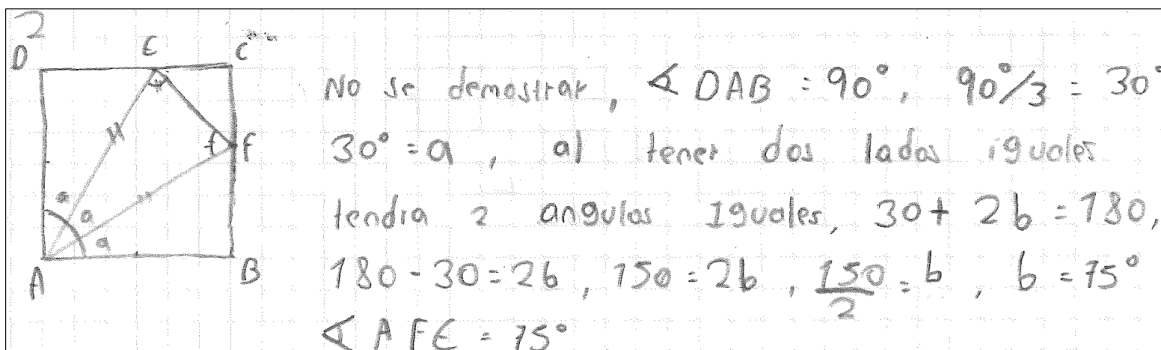 2
D E C
No se demostrar, ∢ DAB = 90°, 90°/3 = 30°
30° = a, al tener dos lados iguales
tendria 2 angulos Iguales, 30 + 2b = 180,
180 - 30 = 2b, 150 = 2b, 150/2 = b, b = 75°
∢ A F E = 75°
F
a a a
A B